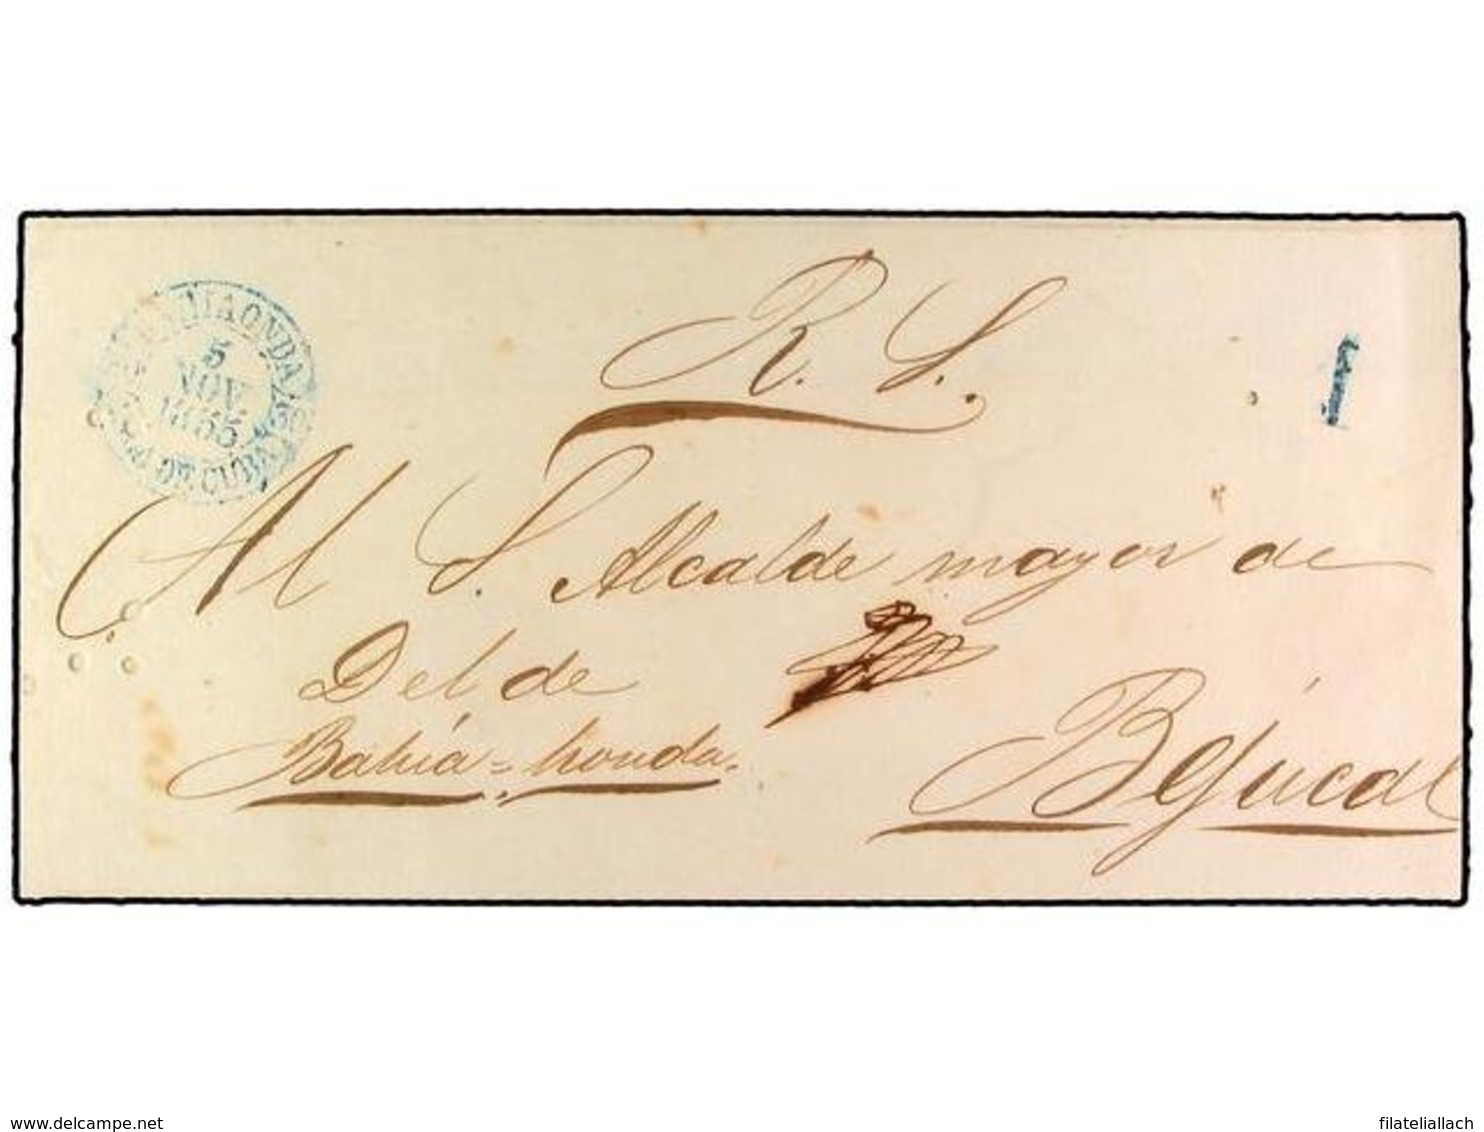 R. S.
5
NOV
1855
DE CUBA
1
Al S. Alcalde mayor de
Del de
Bahía=honda.
Bejúcal
delcampe.net
filateliallach